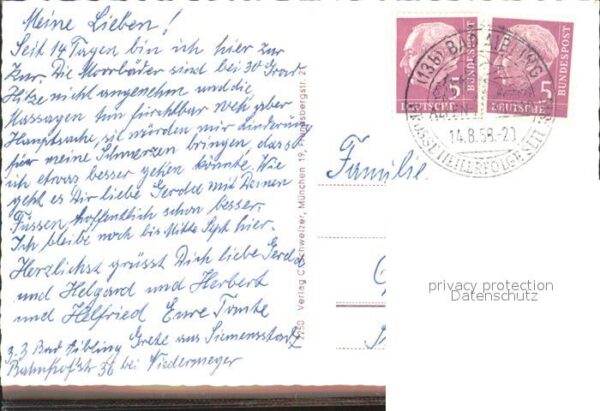 Meine Lieben!
Seit 14 Tagen bin ich hier zur
Kur. Die Moorbäder sind bei 30 Grad
Hitze nicht angenehm und die
Massagen tun furchtbar weh, aber
Hauptsache, sie würden mir Linderung
für meine Schmerzen bringen, dass
ich etwas besser gehen könnte. Wie
geht es Dir liebe Gerda mit Deinen
Füssen, hoffentlich schon besser.
Ich bleibe noch bis Mitte Sept. hier.
Herzlichst grüsst Dich liebe Gerda
und Helgard und Herbert
und Helfried Eure Tante
Grete aus Siemensstadt
z. Z. Bad Aibling
Bahnhofstr 36 bei Niedermeyer
Familie
5 5
DEUTSCHE BUNDESPOST
DEUTSCHE BUNDESPOST
(13b) BAD AIBLING
14.8.58.-20
GROSSE HEILERFOLGE SEIT
Verlag C. Schweizer, München 19, Frundsbergstr. 21
2250
privacy protection
Datenschutz